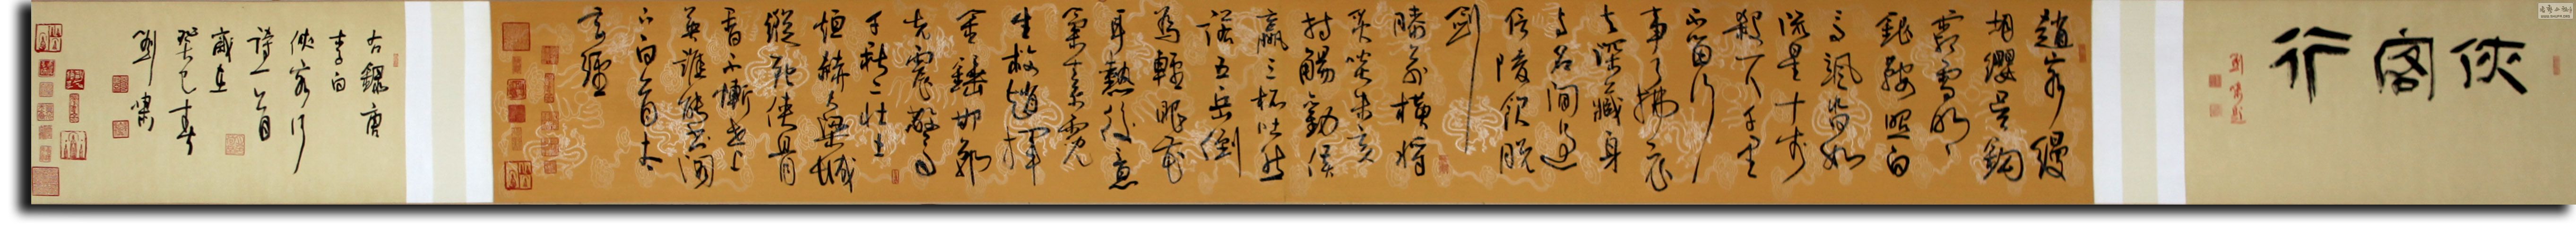 俠客行
趙客縵
胡纓吳鉤
霜雪明
銀鞍照白
馬颯沓如
流星十步
殺一人千里
不留行
事了拂衣
去深藏身
與名閒過
信陵飲脫
劍
膝前橫將
炙啖朱亥
持觴勸侯
嬴三杯吐然
諾五岳倒
為輕眼花
耳熱後意
氣素霓
生救趙揮
金鎚邯鄲
先震驚
千秋二壯士
烜赫大梁城
縱死俠骨
香不慚世上
英誰能書閣
下白首太
玄經
右錄唐
李白
俠客行
詩一首
歲在
癸巳春
劉嘯